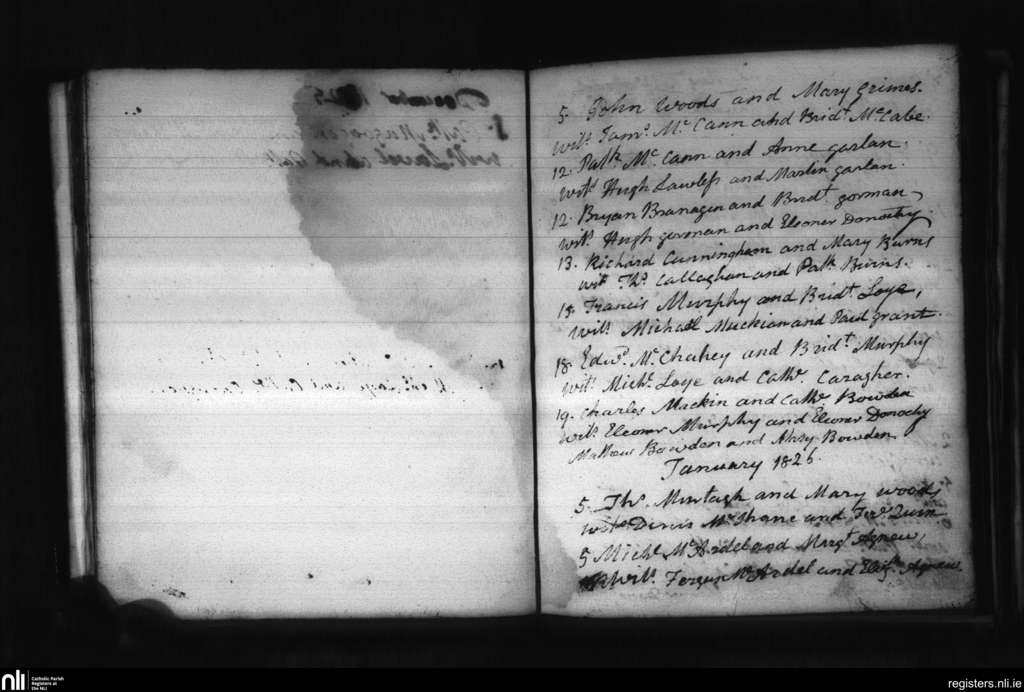 December 1825
5. John Woods and Mary Grimes.
wits. Jams. Mc. Cann and Bridt. McCabe.
12. Patk. Mc. Cann and Anne garlan.
wits. Hugh Lawless and Martin garlan.
12. Bryan Branagen and Bridt. gorman
wits. Hugh gorman and Eleoner Donochy
13. Richard Cunningham and Mary Burns
wit. Ths. Callaghan and Patk. Burns.
18. Francis Murphy and Bridt. Loye,
wits. Michaell Muckian and Paul grant.
18. Edwd. Mc. Chahey and Bridt. Murphy
wits. Michl. Loye and Cathe. Caragher.
19. Charles Mackin and Cathe. Bowden
wits. Eleoner Murphy and Eleoner Donochy
Mathew Bowden and Bowden
January 1826.
5. Ths. Murtagh and Mary woods
wits. Dinis Mc. Shane and Quin
5 Michl. McArdel and Margt. Agnew,
wits. Fergus McArdel and Agnew
nli
Catholic Parish
Registers at
the NLI
registers.nli.ie